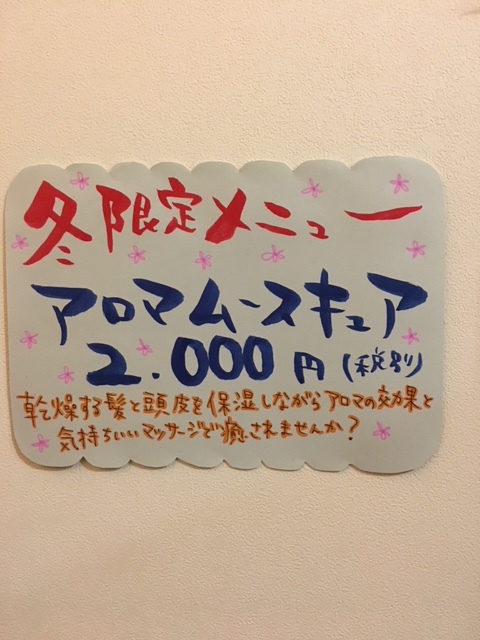 冬限定メニュー
アロマムースキュア
2.000円(税別)
乾燥する髪と頭皮を保湿しながらアロマの効果と
気持ちいいマッサージで癒されませんか?